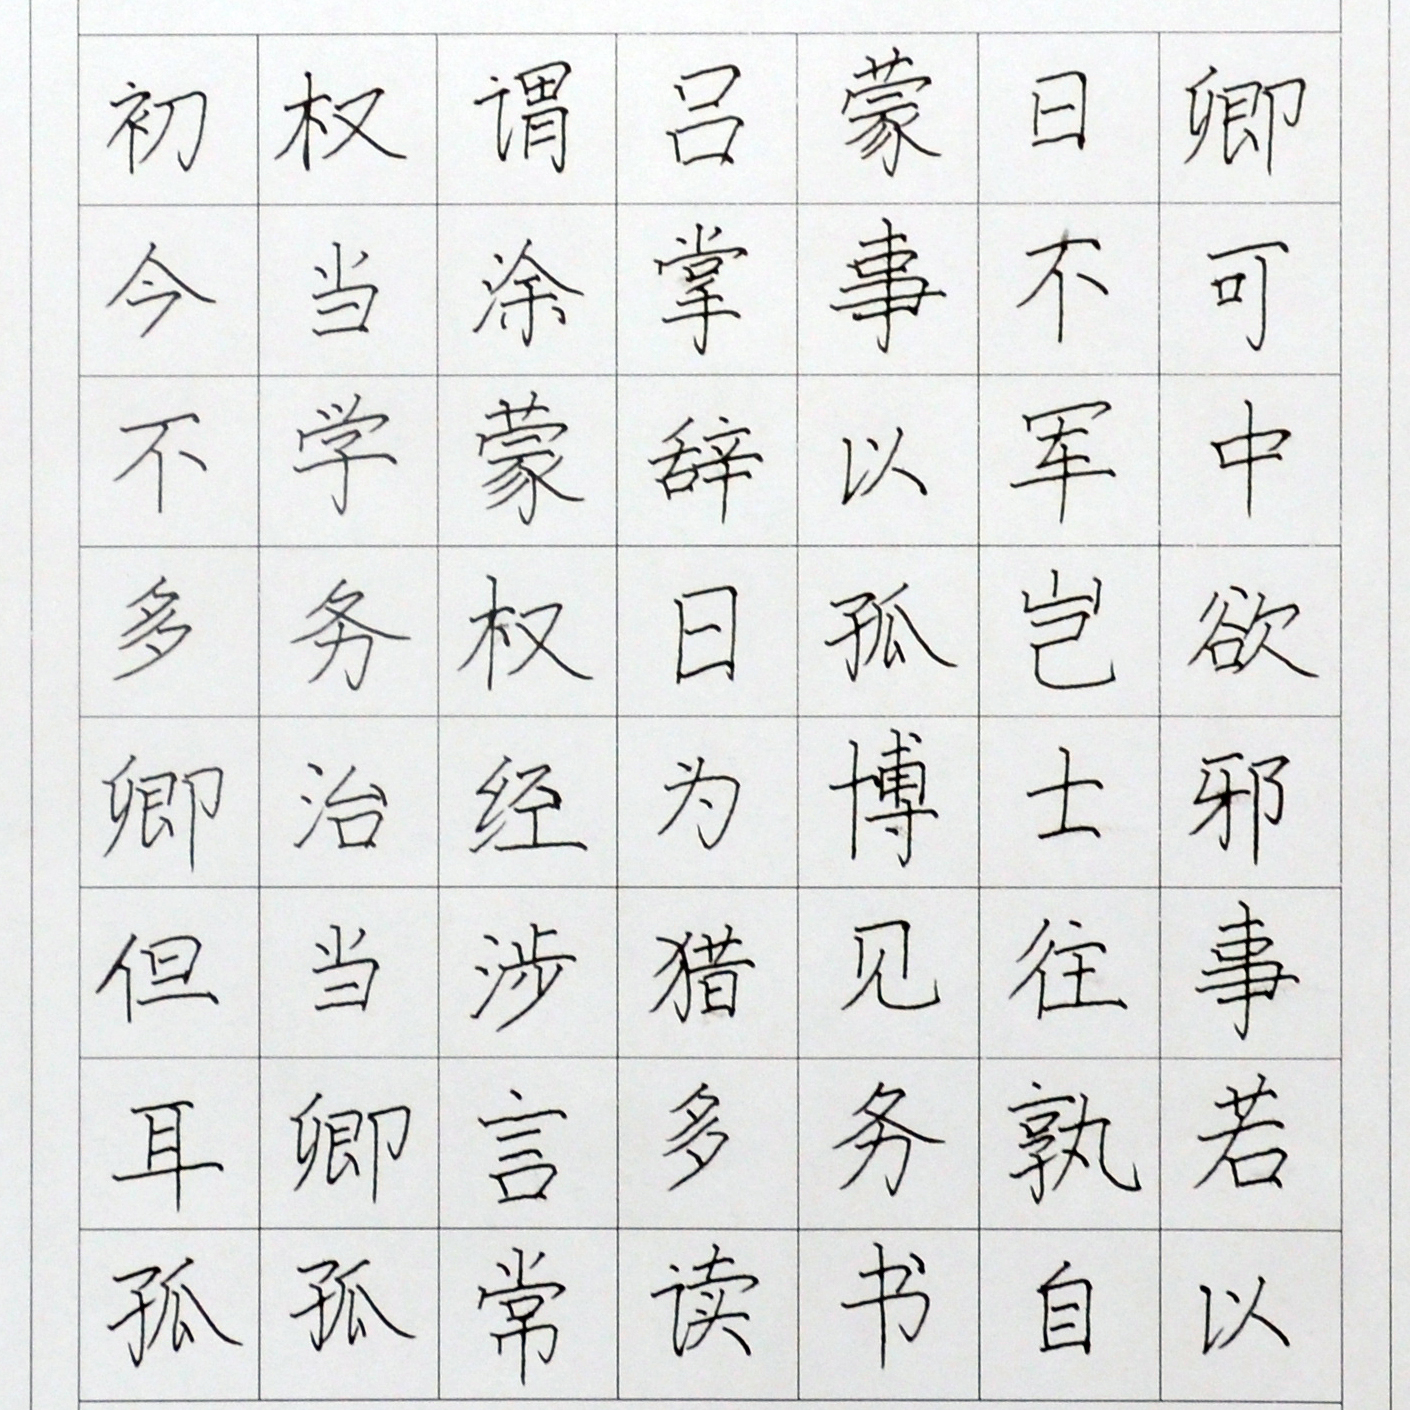 初权谓吕蒙曰卿
今当涂掌事不可
不学蒙辞以军中
多务权曰孤岂欲
卿治经为博士邪
但当涉猎见往事
耳卿言多务孰若
孤孤常读书自以